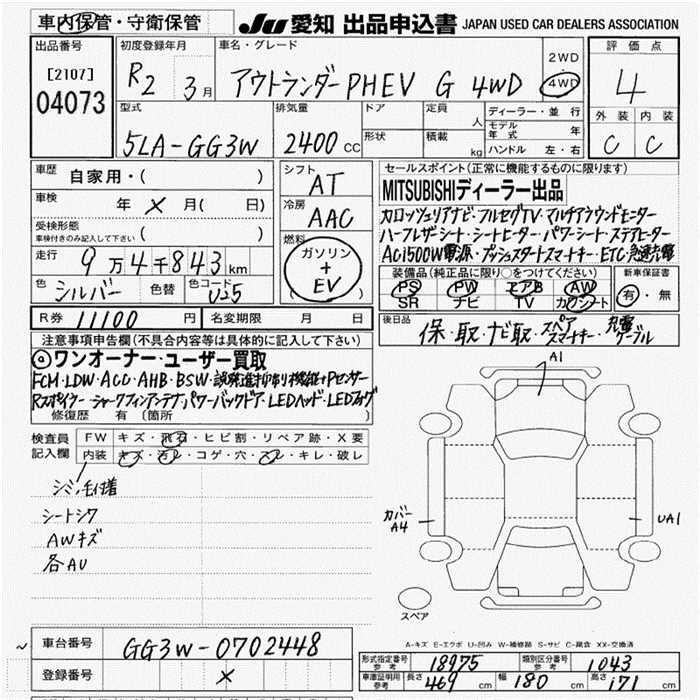 車内保管・守衛保管 JU 愛知 出品申込書 JAPAN USED CAR DEALERS ASSOCIATION
出品番号 初度登録年月 車名・グレード 評価点
[2107] R2 3月 アウトランダーPHEV G 4WD 2WD 4WD 4
04073
型式 排気量 ドア 定員 人 ディーラー・並行 外装 内装
5LA-GG3W 2400CC 形状 積載 kg モデル年式 年 C C
ハンドル 左・右
車歴 自家用・( ) シフト AT セールスポイント(正常に機能するものに限ります)
車検 年 × 月( 日) 冷房 AAC MITSUBISHIディーラー出品
受検形態 ( ) カロッツェリアナビ・フルセグTV・マルチアラウンドモニター
車検付きのみ記入して下さい 燃料 ハーフレザーシート・シートヒーター・パワーシート・ステアヒーター
走行 9万4千843km ガソリン+EV AC1500W電源・プッシュスタートスマートキー・ETC・急速充電
色 シルバー 色替 色コード U25 装備品(純正品に限り○をつけてください) 新車保証書
PS PW エアB AW 有・無
SR ナビ TV カワシート
R券 11100円 名変期限 月 日 後日品 保・取・ナビ取・スペアスマートキー・充電ケーブル
注意事項申告欄(不具合内容等は具体的に記入して下さい)
ⓐワンオーナー・ユーザー買取
FCM・LDW・ACC・AHB・BSW・誤発進抑制機能+Pセンサー
Rスポイラー・シャークフィンアンテナ・パワーバックドア・LEDヘッド・LEDフォグ
修復歴 有 〔箇所 〕
検査員記入欄 FW キズ・飛石・ヒビ割・リペア跡・X要
内装 キズ・汚レ・コゲ・穴・スレ・キレ・破レ
シミ,毛付着
シートシワ
AWキズ
各AU
A1
カバーA4
UA1
スペア
A-キズ E-エクボ U-凹み W-補修跡 S-サビ C-腐食 XX-交換済
車台番号 GG3W-0702448
登録番号 ×
形式指定番号 参考 18975 類別区分番号 参考 1043
車庫証明用 参考 長さ 469cm 幅 180cm 高さ 171cm